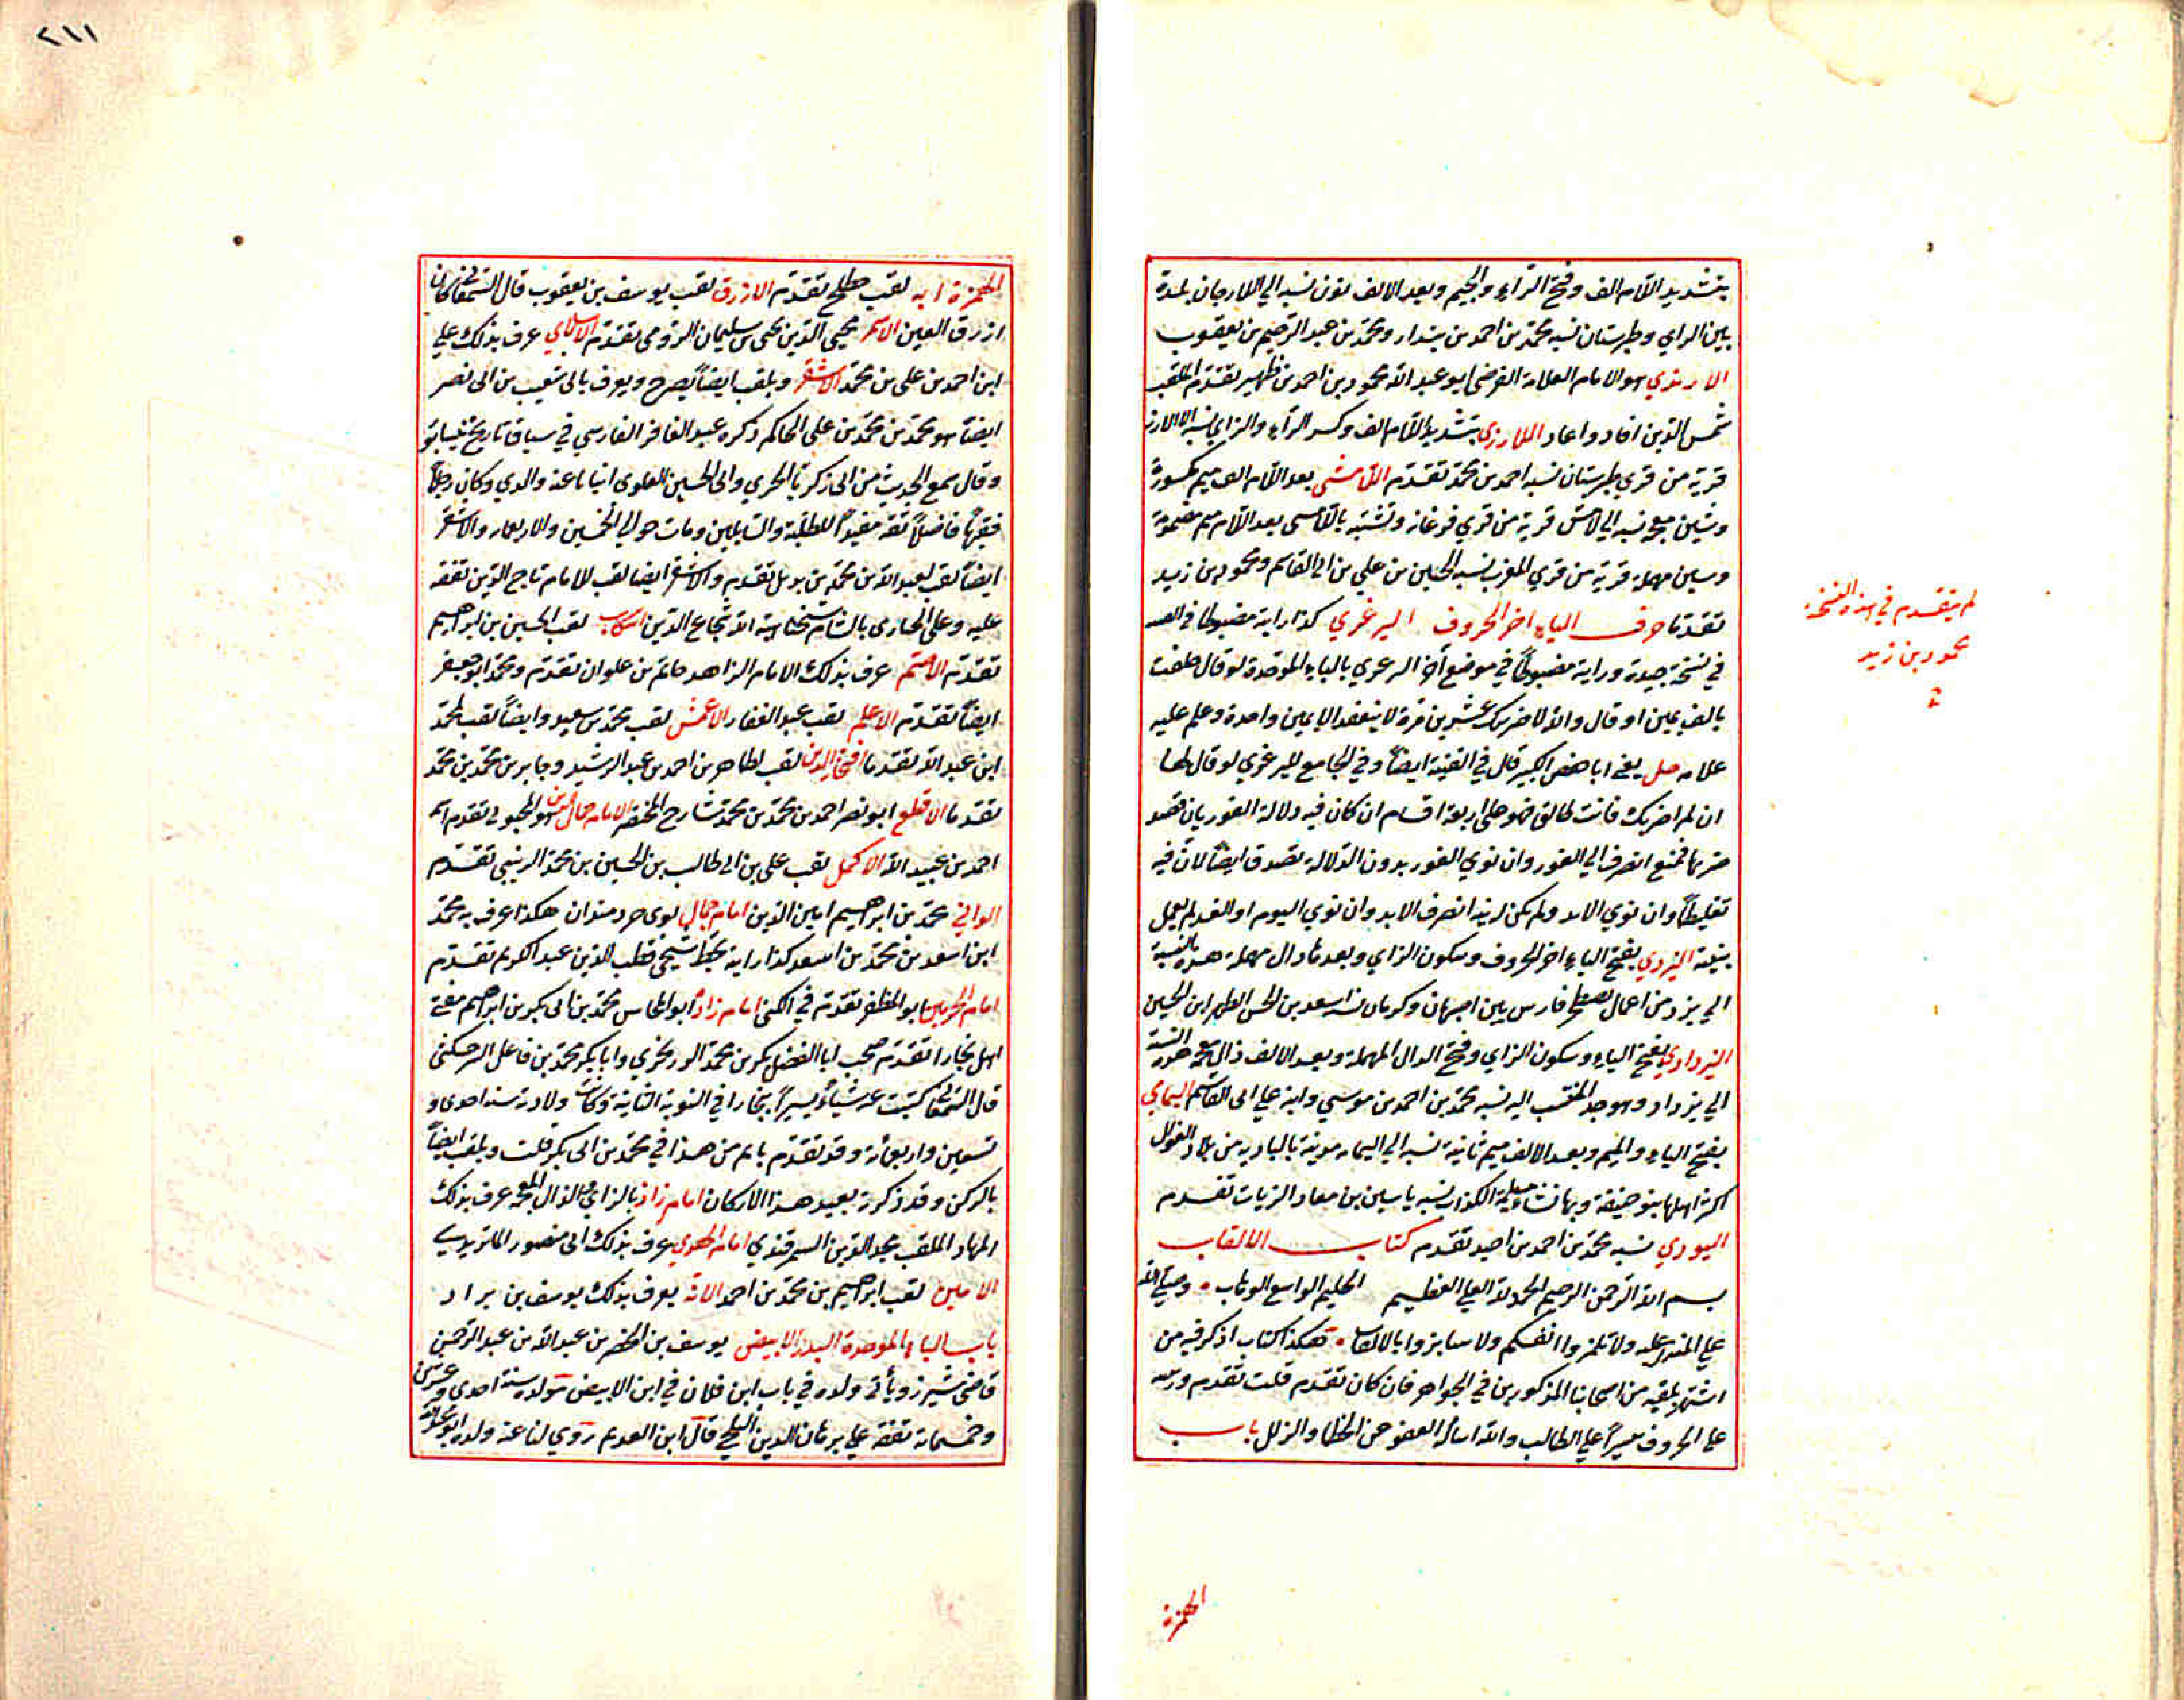 بتشديد اللام الف وفتح الراء والجيم وبعد الالف نون نسبه الي اللارجان بلدة
بين الراي وطبرستان نسبه محمد بن احمد بن بندار ومحمد بن عبد الرحيم بن يعقوب
الارندي هو الامام العلامة الفرضي ابو عبد الله محمود بن احمد بن ظهير تقدم الملقب
شمس الدين افاد واعاد اللارزي بتشديد اللام الف وكسر الراء والزاي نسبه الي اللارز
قرية من قري طبرستان نسبه احمد بن محمد تقدم اللامشي بعد اللام الف ميم مكسورة
وشين معجمة نسبه الي لامش قرية من قري فرغانة وتشتبه باللامسي بعد اللام ميم مضمومة
وسين مهملة قرية من قري المغرب نسبه الحسين بن علي بن ابي القاسم ومحمود بن زيد
تقدما حرف الياء اخر الحروف اليرغري كذا رايته مضبوطا في القنية
في نسخة جيدة ورايته مضبوطا في موضع آخر البرغري بالباء الموحدة لو قال حلفت
بالف يمين او قال والله لاضربنك عشرين مرة لا ينعقد الا يمين واحدة وعلم عليه
علامه حل يعني ابا حفص الكبير قال في القنية ايضاً وفي الجامع لليرغري لو قال لها
ان لم اضربك فانت طالق فهو علي اربعة اقسام ان كان فيه دلالة الفور بان قصد
ضربها فمنع انصرف الي الفور وان نوي الفور بدون الدلالة تصدق ايضاً لان فيه
تغليظاً وان نوي الابد ولم تكن له نية انصرف الابد وان نوي اليوم او الغد لم يعمل
بنيته اليزدي بفتح الياء اخر الحروف وسكون الزاي وبعدها دال مهملة هذه النسبة
الي يزد من اعمال اصطخر فارس بين اصبهان وكرمان نسبه اسعد بن الحسن المطهر ابن الحسين
اليزدادي بفتح الياء وسكون الزاي وفتح الدال المهملة وبعد الالف ذال معجمة هذه النسبة
الي يزداد وهو جد المنتسب اليه نسبه محمد بن احمد بن موسي وابنه علي ابي القاسم اليمامي
بفتح الياء والميم وبعد الالف ميم ثانية نسبه الي اليمامه مدينة بالبادية من بلاد العوالي
اكثر اهلها بنو حنيفة وبها تنبأ مسيلمة الكذاب نسبه ياسين بن معاذ الزيات تقدم
اليودي نسبه محمد بن احمد بن احيد تقدم كتاب الالقاب
بسم الله الرحمن الرحيم الحمد لله العلي العظيم الحليم الواسع الوهاب وصلي الله
علي المنزل عليه ولا تلمزوا انفسكم ولا تنابزوا بالالقاب فهذا كتاب اذكر فيه من
اشتهر بلقبه من اصحابنا المذكورين في الجواهر فان كان تقدم قلت تقدم ورتبته
علي الحروف تيسيراً علي الطالب والله اسأل العفو عن الخطا والزلل باب
الهمزة
لم يتقدم في هذه النسخة
محمود بن زيد
٢١١
الهمزة ابه لقب صلح تقدم الازرق لقب يوسف بن يعقوب قال السمعاني كان
ازرق العين الاسمر محيي الدين يحيي بن سليمان الرومي تقدم الاسلامي عرف بذلك علي
ابن احمد بن علي بن محمد الاشقر ويلقب ايضاً بصرح ويعرف بابي شعيب بن ابي نصر
ايضاً هو محمد بن محمد بن علي الحاكم ذكره عبد الغافر الفارسي في سياق تاريخ نيسابور
وقال سمع الحديث من ابي زكريا الحربي وابي الحسين العلوي انبانا عنه والدي وكان رجلاً
فقيهاً فاضلاً ثقة مفيداً للطلبة والسايلين ومات حوالي الخمسين والاربعمايه والاشقر
ايضاً لقب لعبد الله بن محمد بن تقدم والاشقر ايضا لقب للامام تاج الدين تفقه
عليه وعلي الحصاري بالشام شيخنا هبة الله شجاع الدين اشكاب لقب الحسين بن ابراهيم
تقدم الاصم عرف بذلك الامام الزاهد حاتم بن علوان تقدم ومحمد ابو جعفر
ايضاً تقدم الاعلم لقب عبد الغفار الاعمش لقب محمد بن سعيد وايضاً لقب لمحمد
ابن عبد الله تقدما افتخار الدين لقب لطاهر بن احمد بن عبد الرشيد وجابر بن محمد بن محمد
تقدما الاقطع ابو نصر احمد بن محمد بن محمد شارح المختصر الامام جمال الدين هو المحبوبي تقدم اسمه
احمد بن عبيد الله الاكمل لقب علي بن ابي طالب بن الحسين بن محمد الزينبي تقدم
الواني محمد بن ابراهيم امين الدين امام جمال لوي هكذا عرف به محمد
ابن اسعد بن محمد بن اسعد كذا رايته بخط شيخي قطب الدين عبد الكريم تقدم
امام الحرمين ابو المظفر تقدم في الكني امام زاده ابو المحاسن محمد بن ابي بكر بن ابراهيم مفتي
اهل بخارا تقدم صحب ابا الفضل بكر بن محمد الزرنجري وابا بكر محمد بن فاعل السرحكتي
قال السمعاني كتبت عنه شيأ يسيراً ببخارا في النوبة الثانية وكانت ولادته سنة احدي و
تسعين واربعماية وقد تقدم باتم من هذا في محمد بن ابي بكر قلت ويلقب ايضاً
بالركن وقد ذكرته بعيد هذا الاركان امام زاد بالزاي والذال المعجمة عرف بذلك
العماد الملقب مجد الدين السمرقندي امام الهدي عرف بذلك ابي منصور الماتريدي
الامين لقب ابراهيم بن محمد بن احمد الاثه يعرف بذلك يوسف بن
باب الباء الموحدة البدر الابيض يوسف بن الخضر بن عبد الله بن عبد الرحمن
قاضي شيزر ويأتي ولده في باب ابن فلان في ابن الابيض مولده سنة احدي وعشرين
وخمسماية تفقه علي برهان الدين البلخي قال ابن العديم روي لنا عنه ولده ابو عبد الله